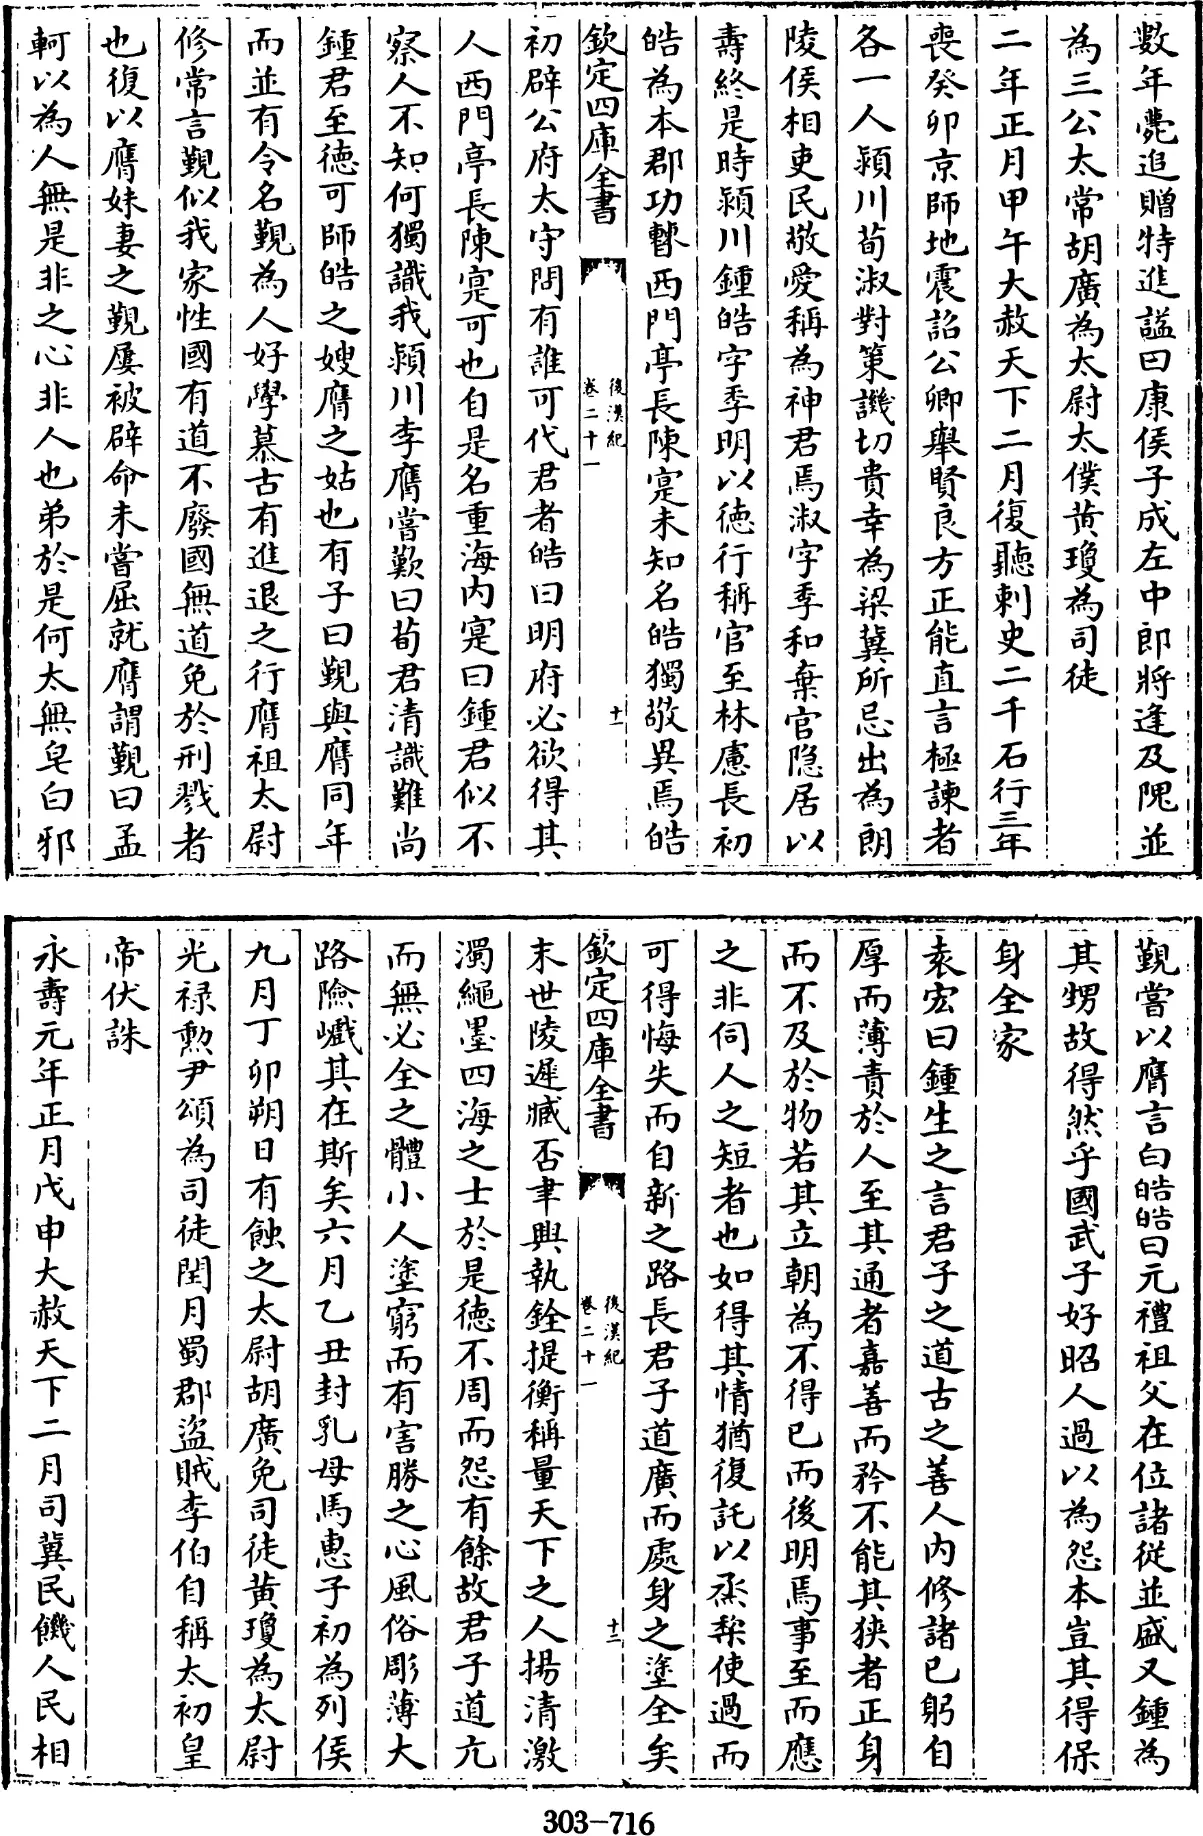 數年薨追贈特進諡曰康侯子成左中郎將逢及隗並
為三公太常胡廣為太尉太僕黄瓊為司徒
二年正月甲午大赦天下二月復聽刺史二千石行三年
喪癸卯京師地震詔公卿舉賢良方正能直言極諫者
各一人潁川荀淑對策譏切貴幸為梁冀所忌出為朗
陵侯相吏民敬愛稱為神君焉淑字季和棄官隐居以
壽終是時潁川鍾皓字季明以徳行稱官至林慮長初
皓為本郡功曹西門亭長陳寔未知名皓獨敬異焉皓
欽定四庫全書
後漢紀
卷二十一
十一
初辟公府太守問有誰可代君者皓曰明府必欲得其
人西門亭長陳寔可也自是名重海内寔曰鍾君似不
察人不知何獨識我潁川李膺嘗歎曰荀君清識難尚
鍾君至徳可師皓之嫂膺之姑也有子曰覲與膺同年
而並有令名覲為人好學慕古有進退之行膺祖太尉
修常言覲似我家性國有道不廢國無道免於刑戮者
也復以膺妹妻之覲屢被辟命未嘗屈就膺謂覲曰孟
軻以為人無是非之心非人也弟於是何太無皂白邪
覲嘗以膺言白皓皓曰元禮祖父在位諸從並盛又鍾為
其甥故得然乎國武子好昭人過以為怨本豈其得保
身全家
袁宏曰鍾生之言君子之道古之善人内修諸已躬自
厚而薄責於人至其通者嘉善而矜不能其狹者正身
而不及於物若其立朝為不得已而後明焉事至而應
之非伺人之短者也如得其情猶復託以烝黎使過而
可得悔失而自新之路長君子道廣而處身之塗全矣
欽定四庫全書
後漢紀
卷二十一
十二
末世陵遲臧否聿興執銓提衡稱量天下之人揚清激
濁繩墨四海之士於是徳不周而怨有餘故君子道亢
而無必全之體小人塗窮而有害勝之心風俗彫薄大
路險巇其在斯矣六月乙丑封乳母馬惠子初為列侯
九月丁卯朔日有蝕之太尉胡廣免司徒黄瓊為太尉
光禄勲尹頌為司徒閏月蜀郡盗賊李伯自稱太初皇
帝伏誅
永壽元年正月戊申大赦天下二月司冀民饑人民相
303-716